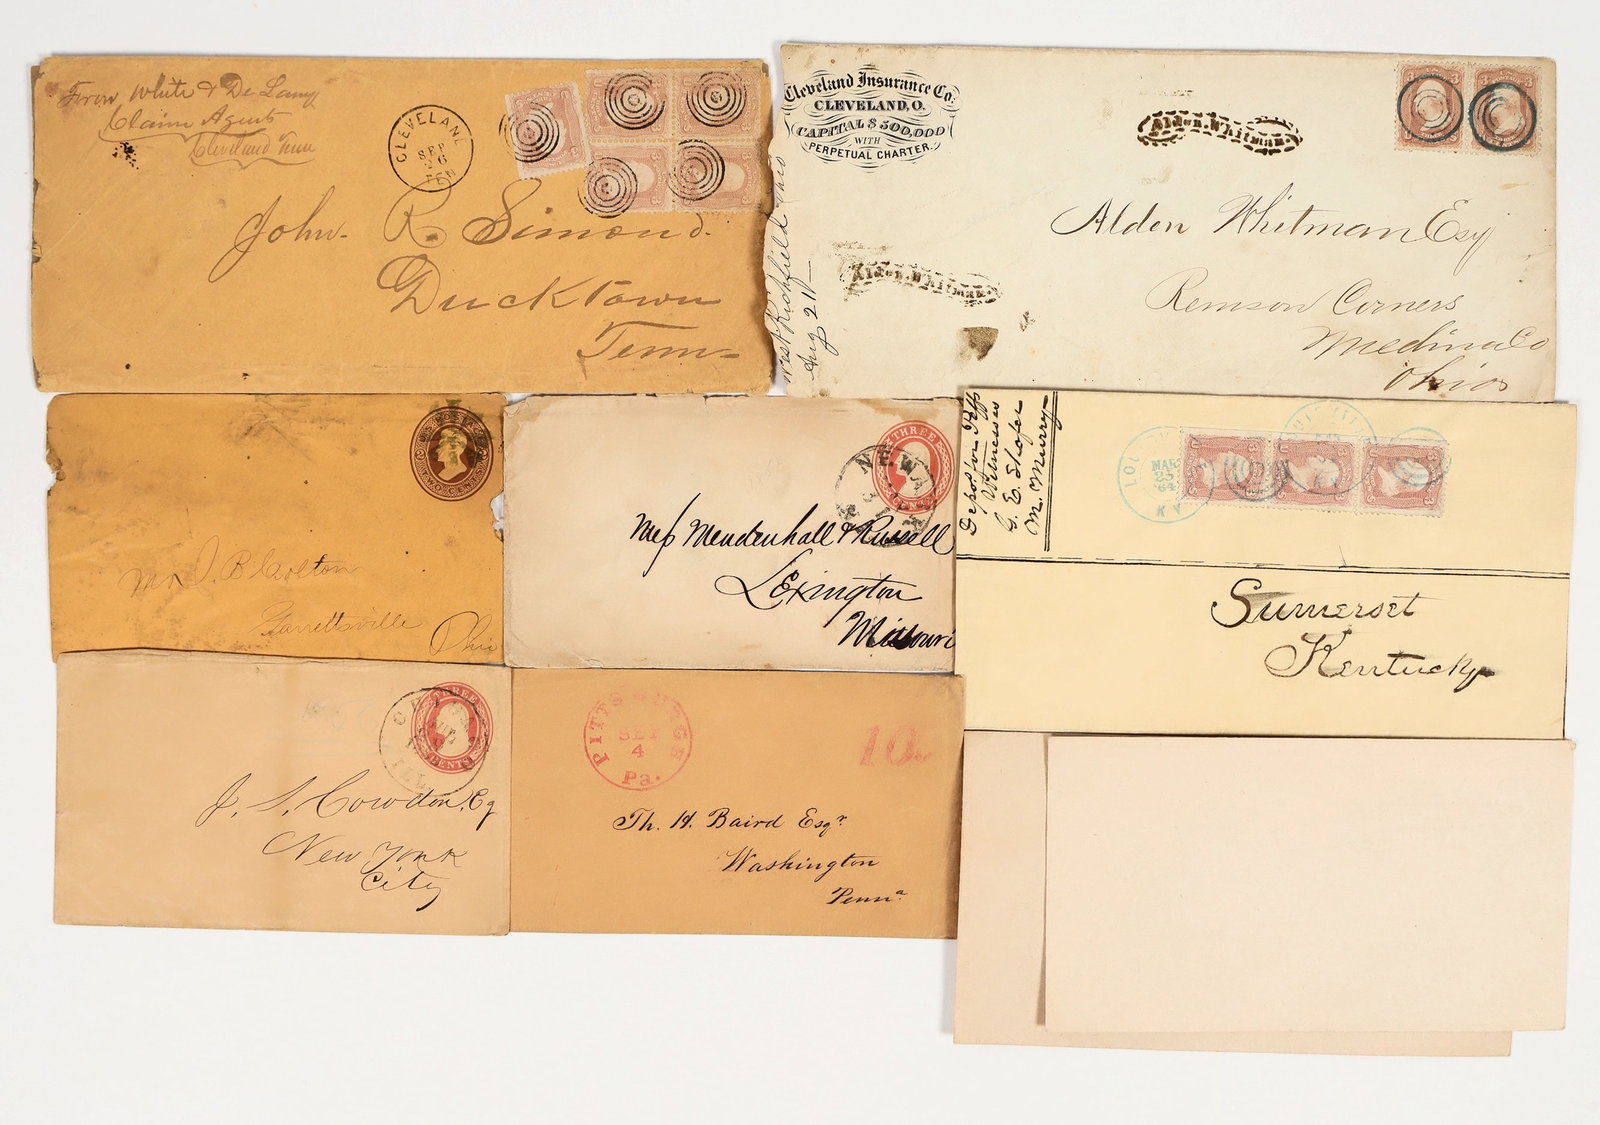 From White & De Lany
Claim Agents
Cleveland Tenn
CLEVELAND
SEP
26
TEN
John R Simond.
Ducktown
Tenn
Cleveland Insurance Co.
CLEVELAND, O.
CAPITAL $500,000
WITH
PERPETUAL CHARTER.
Alden. Whitman.
Alden. Whitman.
West Richfield Ohio
Aug 21st
Alden Whitman Esq
Remson Corners
Medina Co
Ohio
3 3
U.S. POSTAGE
TWO CENTS
Mr J. B. Colton
Garrettsville
Ohio
THREE
CENTS
NEW
Mess Mendenhall & Russell
Lexington
Missouri
Depos for Pff
Witnesses
G. E. Stofer
M. Murry
MAR
23
64
KY
Sumerset
Kentucky
THREE
CENTS
ILL
J. S. Cowdon, Esq
New York
City
PITTSBURGH
SEP
4
Pa.
10
Th. H. Baird Esqr.
Washington
Penna.